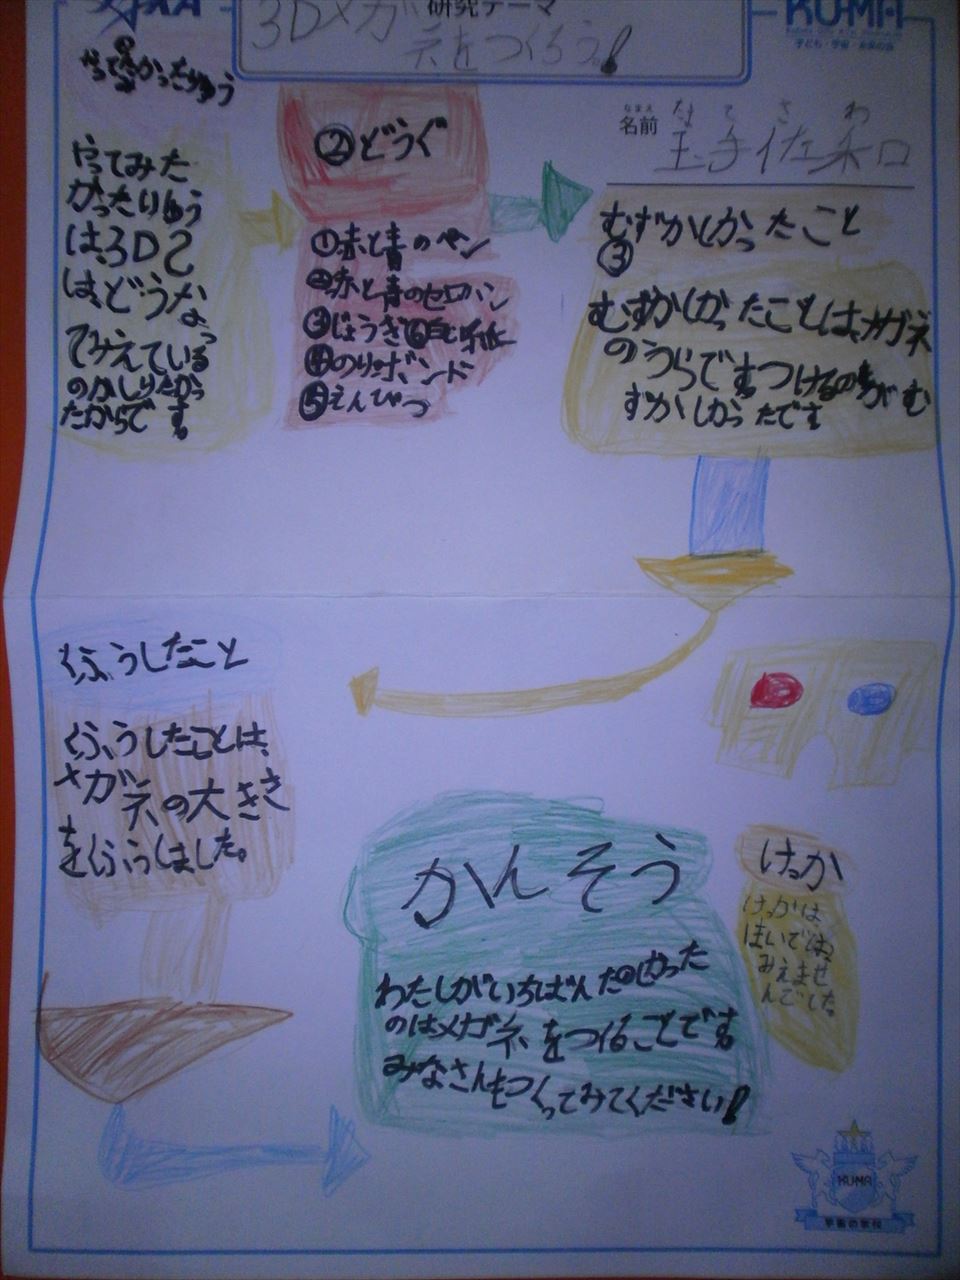 研究テーマ
3Dメガ
ネをつくろう!
KU-MA
子ども・宇宙・未来の会
なまえ
名前
さわ
玉手佐和
やってみた
かったりゆう
は、3Dと
は、どうなっ
てみえている
のかしりたかっ
たからです。
②どうぐ
①赤と青のペン
②赤と青のセロハン
③じょうぎ
④のり、ボンド
⑤えんぴつ
むずかしかったこと
③
むずかしかったことは、メガネ
のうらで
ずかしかったです
くふうしたこと
くふうしたことは、
メガネの大きさ
をくふうしました。
けっか
けっかは
みえませ
んでした。
かんそう
わたしがいちばんたのしかった
のはメガネをつくることです。
みなさんもつくってみてください!
KU-MA
宇宙の学校